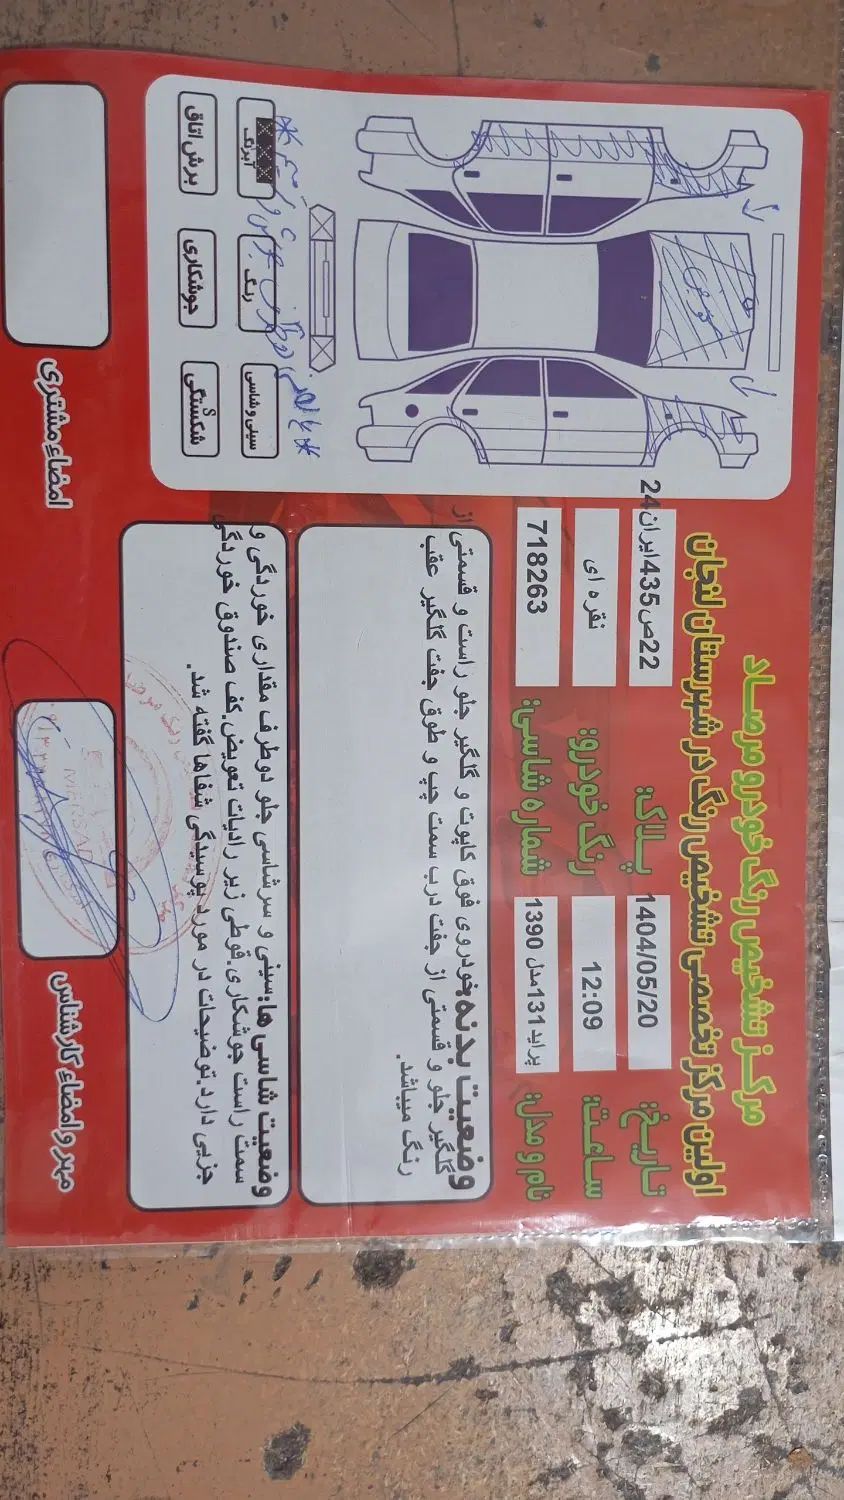 مرکز تشخیص رنگ خودرو مرصاد
اولین مرکز تخصصی تشخیص رنگ در شهرستان لنجان
تاریخ: 1404/05/20
پلاک: 22ص435ایران24
ساعت: 12:09
رنگ خودرو: نقره ای
نام و مدل: پراید131مدل 1390
شماره شاسی: 718263
وضعیت بدنه:خودروی فوق کاپوت و گلگیر جلو راست و قسمتی از
گلگیر جلو و قسمتی از جفت درب سمت چپ و طوق جفت گلگیر عقب
رنگ میباشد.
وضعیت شاسی ها:سینی و سرشاسی جلو دوطرف مقداری خوردگی و
سمت راست جوشکاری.قوطی زیر رادیات تعویض.کف صندوق خوردگی
جزیی دارد.توضیحات در مورد پوسیدگی شفاها گفته شد.
تعویض
آبرنگ
رنگ
سینی و شاسی
برش اتاق
جوشکاری
شکستگی
S
مهر و امضاء کارشناس
امضاء مشتری